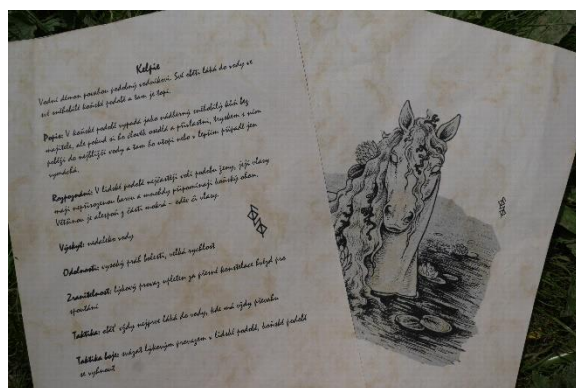 Kelpie
Vodní démon povahou podobný vodníkovi. Své oběti láká do vody ve
své sněhobílé koňské podobě a tam je topí.
Popis: V koňské podobě vypadá jako nádherný sněhobílý kůň bez
majitele, ale pokud si ho člověk osedlá a přivlastní, tryskem s ním
poběží do nejbližší vody a tam ho utopí nebo v lepším případě jen
vymáchá.
Rozpoznání: V lidské podobě nejčastěji volí podobu ženy, její vlasy
mají nepřirozenou barvu a mnohdy připomínají koňský ohon.
Většinou je alespoň z části mokrá – oděv či vlasy.
Výskyt: nedaleko vody
Odolnosti: vysoký práh bolesti, velká rychlost
Zranitelnost: lýkový provaz upleten za přesné konstelace hvězd pro
spoutání
Taktika: oběť vždy nejprve láká do vody, kde má vždy převahu
Taktika boje: svázat lýkovým provazem v lidské podobě, koňské podobě
se vyhnout